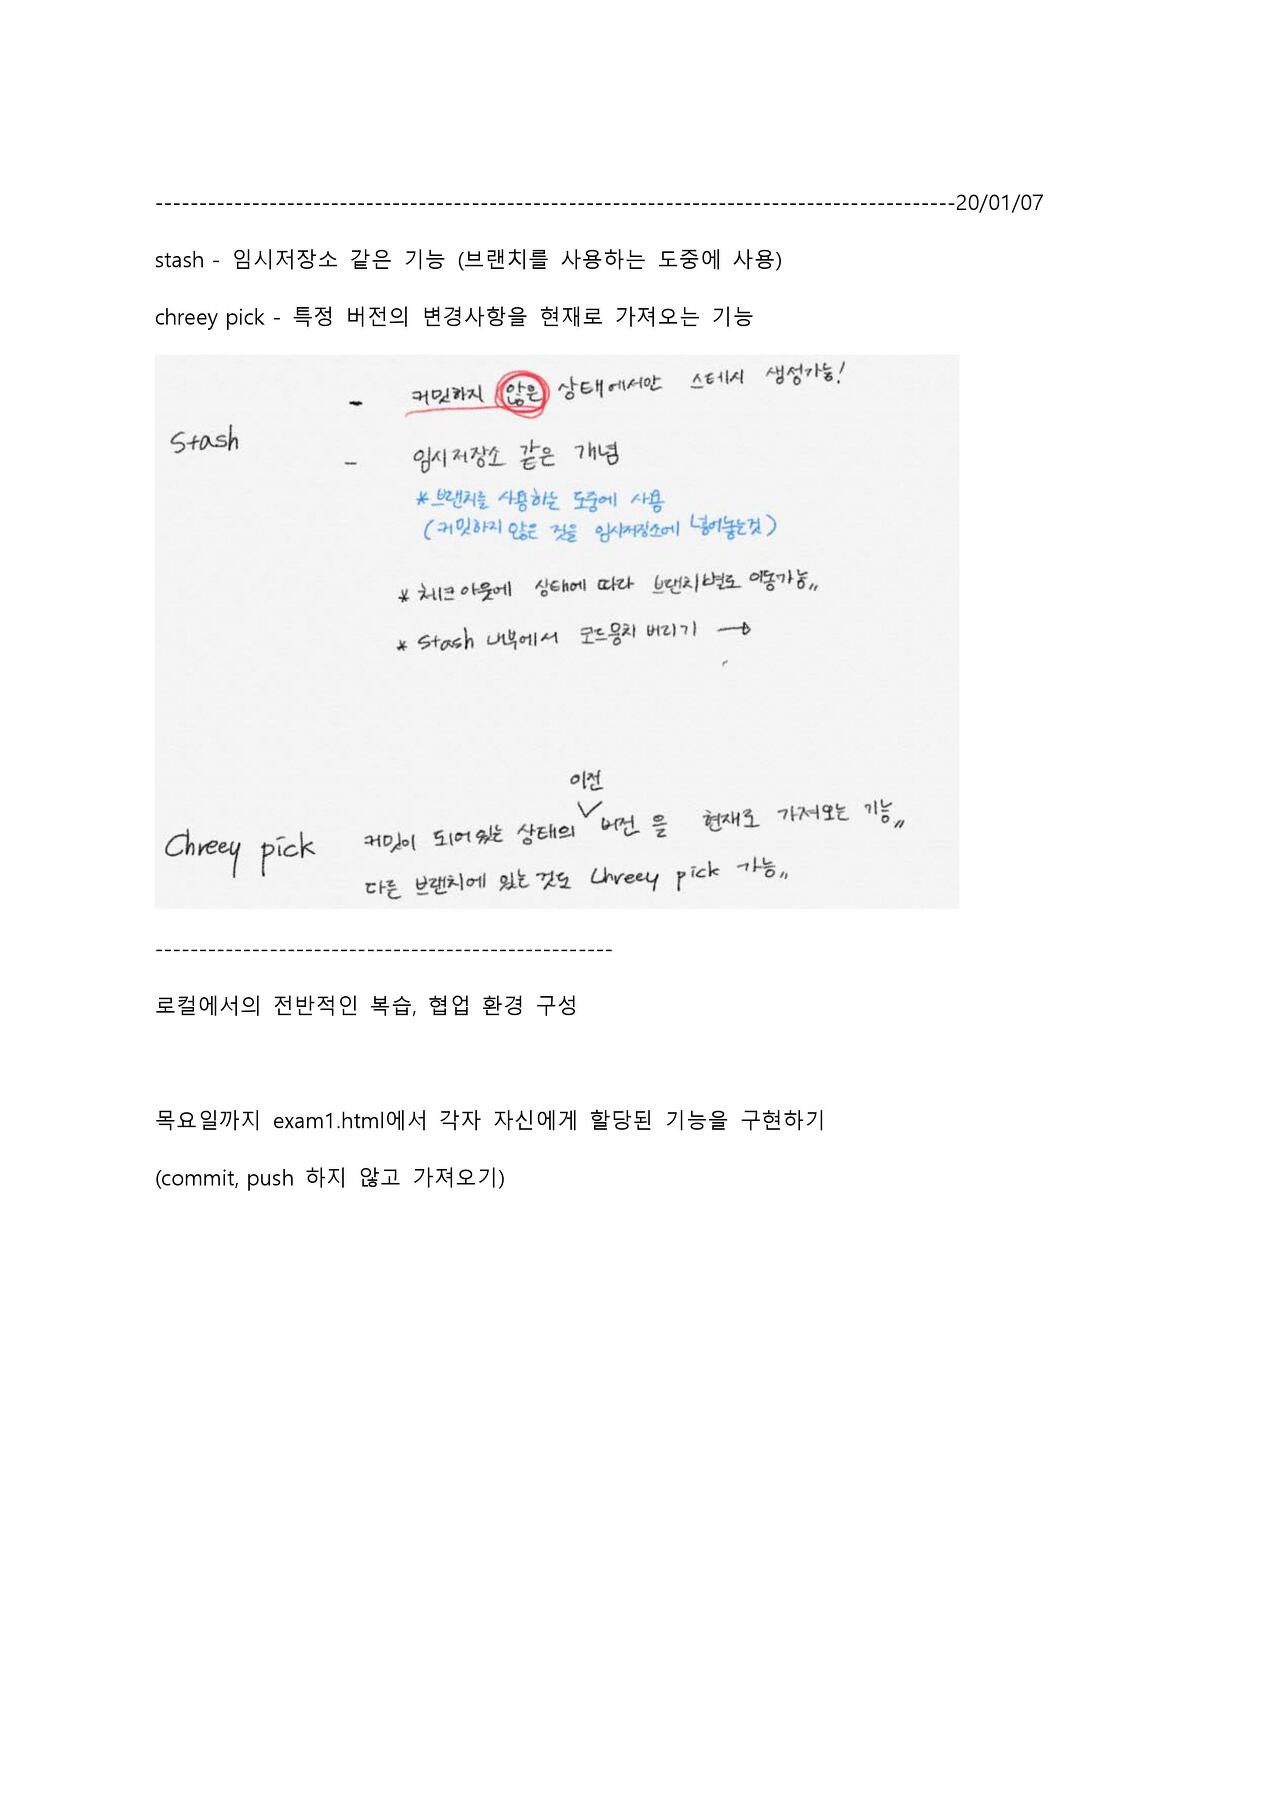 --------------------------------------------------------------------------------------------20/01/07
stash - 임시저장소 같은 기능 (브랜치를 사용하는 도중에 사용)
chreey pick - 특정 버전의 변경사항을 현재로 가져오는 기능
- 커밋하지 않은 상태에서만 스테시 생성가능!
Stash
- 임시저장소 같은 개념
*브랜치를 사용하는 도중에 사용
(커밋하지 않은 것을 임시저장소에 넣어놓는것)
* 체크아웃에 상태에 따라 브랜치별로 이동가능〃
* Stash 내부에서 코드뭉치 버리기 →
이전
Chreey pick 커밋이 되어있는 상태의 ∨ 버전을 현재로 가져오는 기능〃
다른 브랜치에 있는것도 Chreey pick 가능〃
----------------------------------------------------
로컬에서의 전반적인 복습, 협업 환경 구성
목요일까지 exam1.html에서 각자 자신에게 할당된 기능을 구현하기
(commit, push 하지 않고 가져오기)